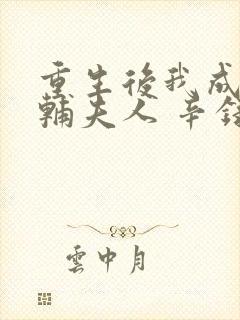 重生後我成
輔夫人 辛
雲中月